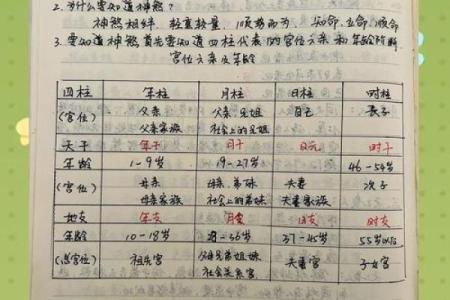 2.为什么要知道神煞?
神煞相绊,轻重较量,顺势而为,知命、立命、顺命
3.要知道神煞首先要知道四柱代表的宫位六亲和年龄阶解
宫位六亲及年龄
四柱 年柱 月柱 日柱 时柱
(宫位) 父亲 父亲.兄姐 自己 长子
父亲家族 社会上的兄姐
天干 年干 月干 日元 时干
年龄 1-9岁 19-27岁 46-54岁
(宫位) 母亲 母亲.弟妹 夫妻 次子
母亲家族 社会上的弟妹 夫妻家族
地支 年支 月支 日支 时支
年龄 10-18岁 28-36岁 37-45岁 55岁以后
(总宫位) 祖乐宫 父母兄弟姐妹 夫妻宫 子女宫
社会关系宫